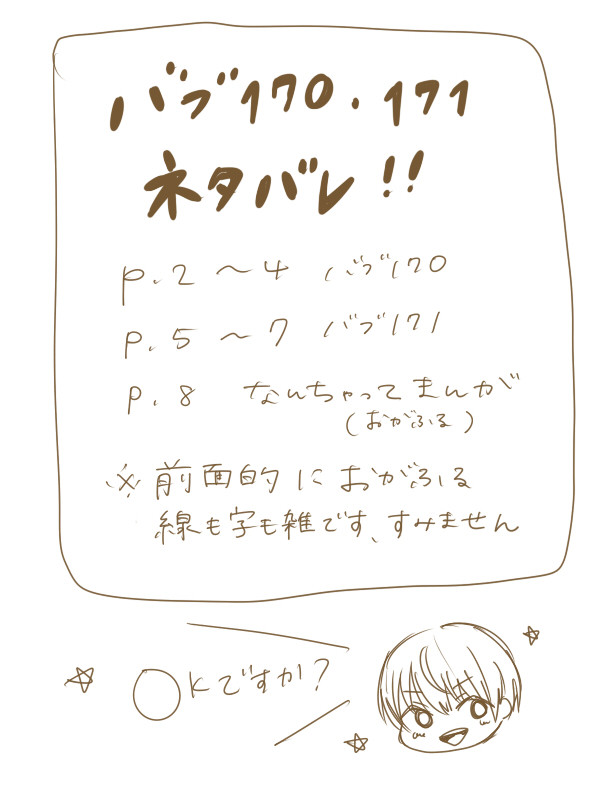 バブ170.171
ネタバレ!!
p.2 〜4 バブ170
p.5 〜7 バブ171
p.8 なんちゃってまんが
(おがふる)
※前面的におがふる
線も字も雑です、すみません
OKですか?